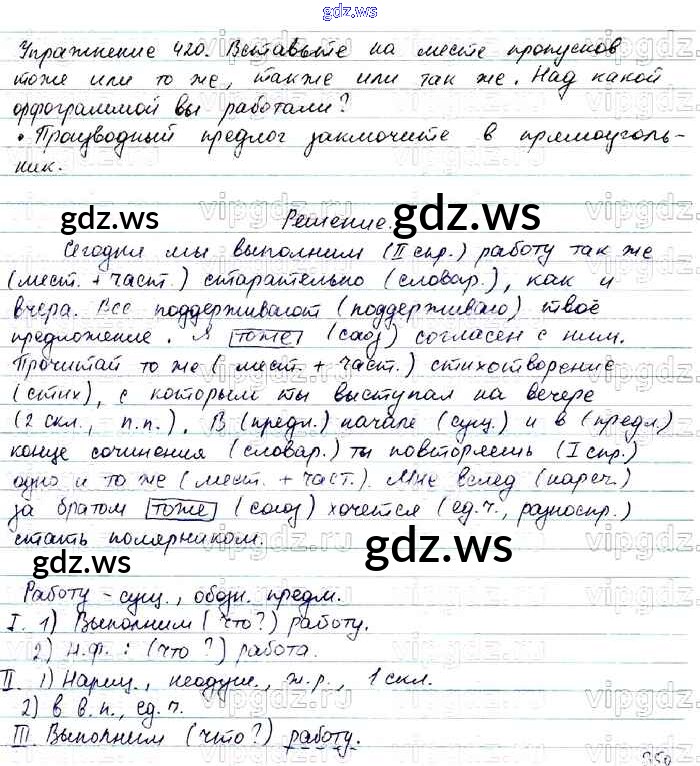 gdz.ws
Упражнение 420. Вставьте на месте пропусков
тоже или то же, также или так же. Над какой
орфограммой вы работали?
• Производный предлог заключите в прямоуголь-
ник.
gdz.ws
gdz.ws
Решение.
Сегодня мы выполним (II спр.) работу так же
(мест. + част.) старательно (словар.), как и
вчера. Все поддерживают (поддерживаю) твоё
предложение. Я тоже (союз) согласен с ним.
Прочитай то же (мест. + част.) стихотворение
(стих), с которым ты выступал на вечере
(2 скл., п.п.). В (предл.) начале (сущ.) и в (предл.)
конце сочинения (словар.) ты повторяешь (I спр.)
одно и то же (мест. + част.). Мне вслед (нареч.)
за братом тоже (союз) хочется (ед.ч., разноспр.)
стать полярником.
gdz.ws
gdz.ws
Работу - сущ., обозн. предм.
I. 1) Выполним (что?) работу.
2) Н.ф.: (что?) работа.
II. 1) Нариц., неодуш., ж.р., 1 скл.
2) в В.п., ед.ч.
III. Выполним (что?) работу.
gdz.ws